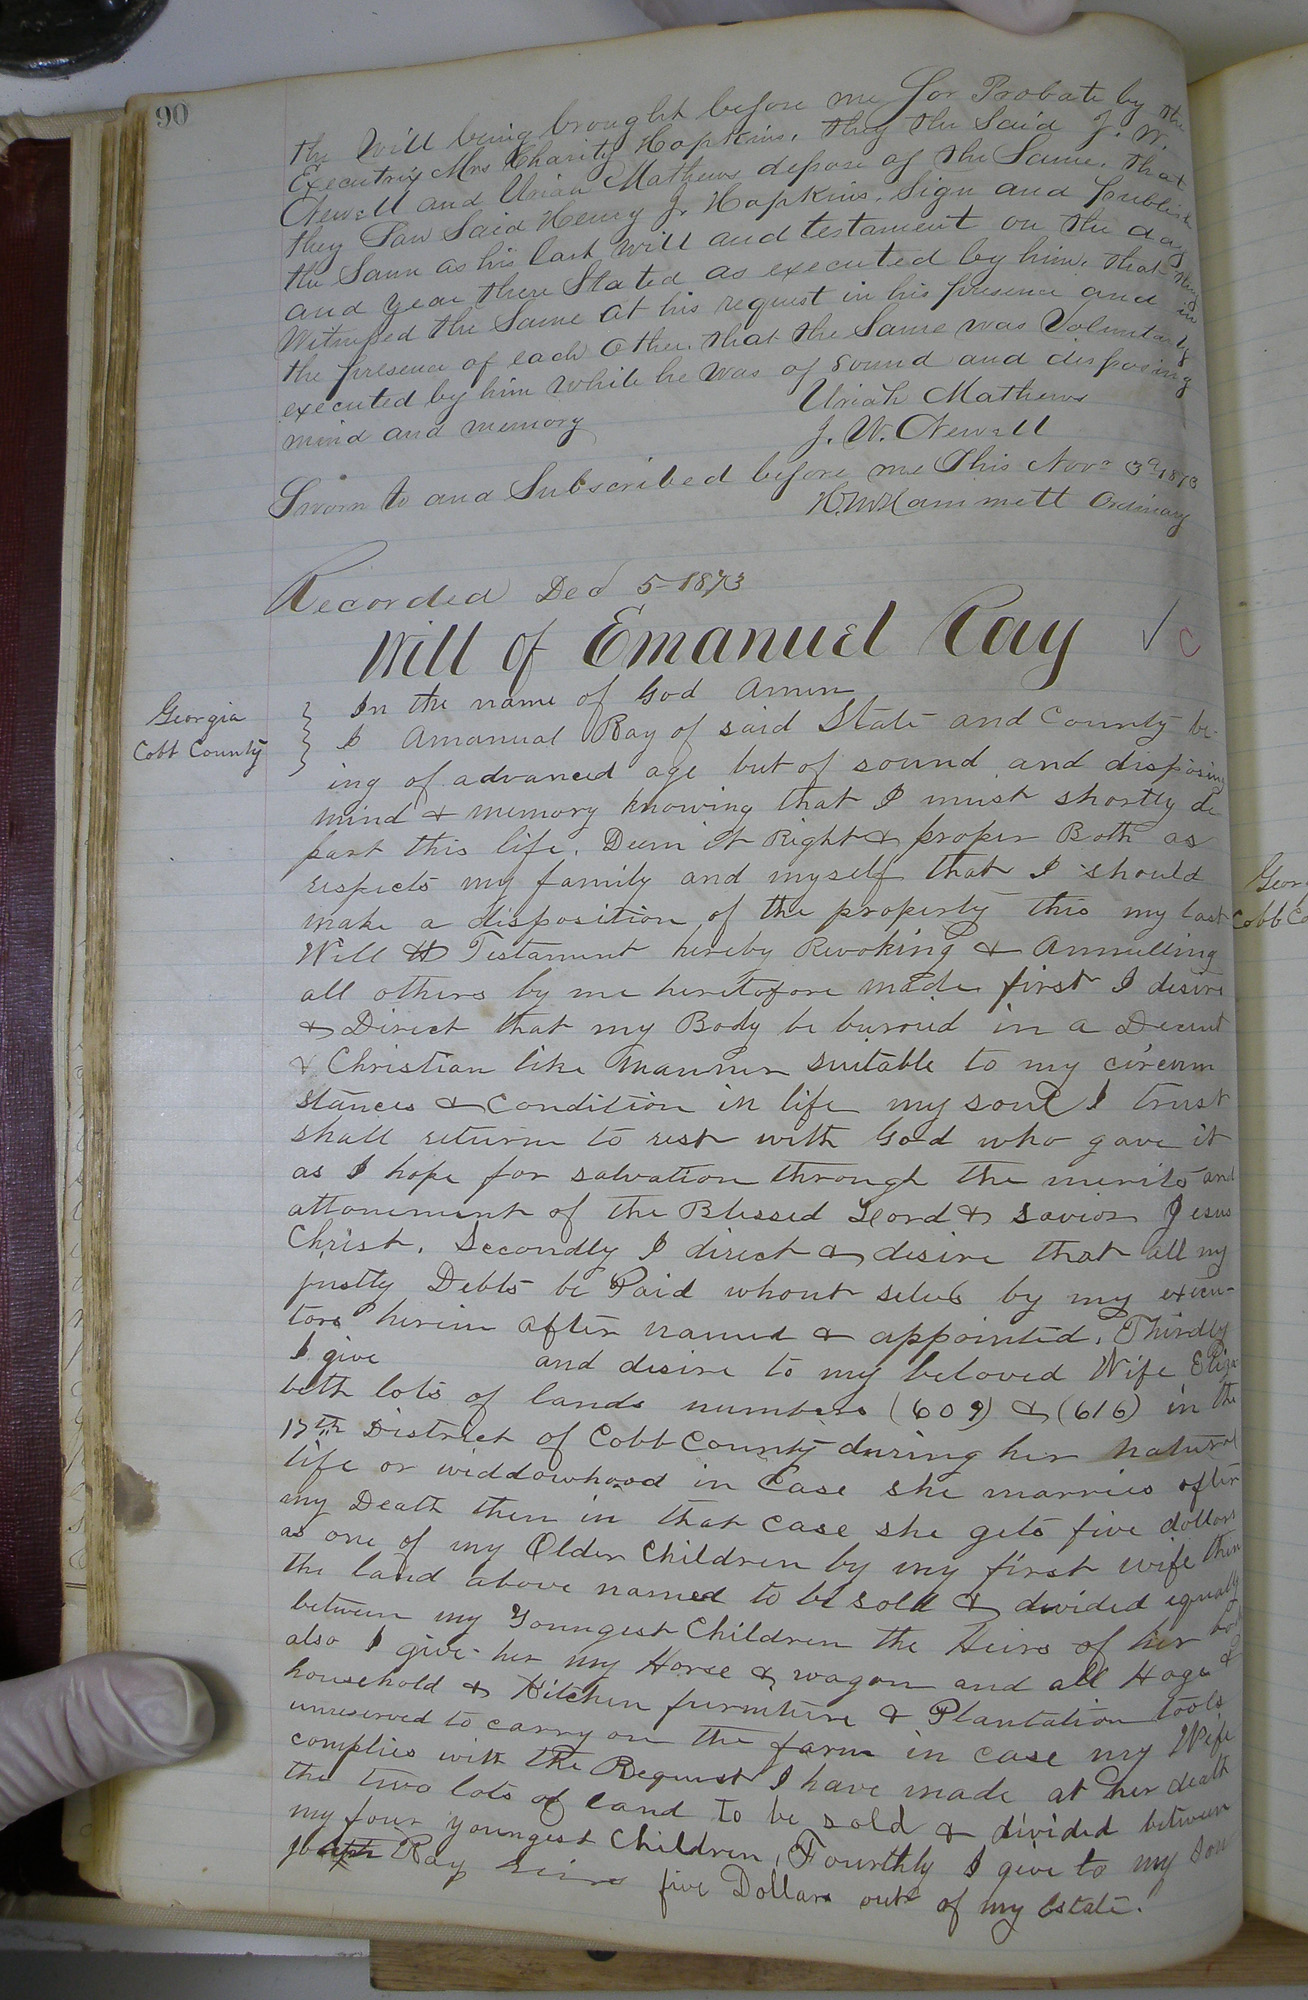 90
the Will being brought before me for Probate by the
Executrix Mrs Charity Hopkins, they the Said J. W.
Newell and Uriah Mathews depose of the Same, that
they Saw Said Henry J. Hopkins, Sign and publish
the Same as his last Will and testament on the day
and year there Stated as executed by him, that they
Witnessed the Same at his request in his presence and in
the presence of each other, that the Same was Voluntarily
executed by him while he was of sound and disposing
mind and memory
Uriah Mathews
J. W. Newell
Sworn to and Subscribed before me This Nov 3d 1873
H. M. Hammett Ordinary
Recorded Dec 5 1873
Will of Emanuel Ray
Georgia
Cobb County
In the name of God Amen
I Amanual Ray of said State and County be-
ing of advanced age but of sound and disposing
mind & memory knowing that I must shortly de
part this life, Deem it Right & proper Both as
respects my family and myself that I should
make a disposition of the property this my last
Will & Testament hereby Revoking & Annulling
all others by me heretofore made first I desire
& Direct that my Body be buroied in a Decent
& Christian like manner suitable to my circum
stances & Condition in life my soul I trust
shall return to rest with God who gave it
as I hope for salvation through the merits and
attonement of the Blessed Lord & Savior Jesus
Christ. Secondly I direct & desire that all my
justly Debts be Paid whout by my execu-
tors herein after named & appointed. Thirdly
I give and desire to my beloved Wife Eliza
beth lots of lands numbers (609) & (616) in the
17th District of Cobb County during her natural
life or widdowhood in Case she marries after
my Death then in that case she gets five dollars
as one of my Older Children by my first wife then
the land above named to be sold & divided equally
between my Youngest Children the Heirs of her body
also I give her my Horse & wagon and all Hogs &
household & Kitchen furniture & Plantation tools
unreserved to carry on the farm in case my Wife
complies with the Request I have made at her death
the two lots of land to be sold & divided between
my four youngest Children, Fourthly I give to my Son
Ray heirs five Dollars out of my Estate.
Geor
Cobb Co